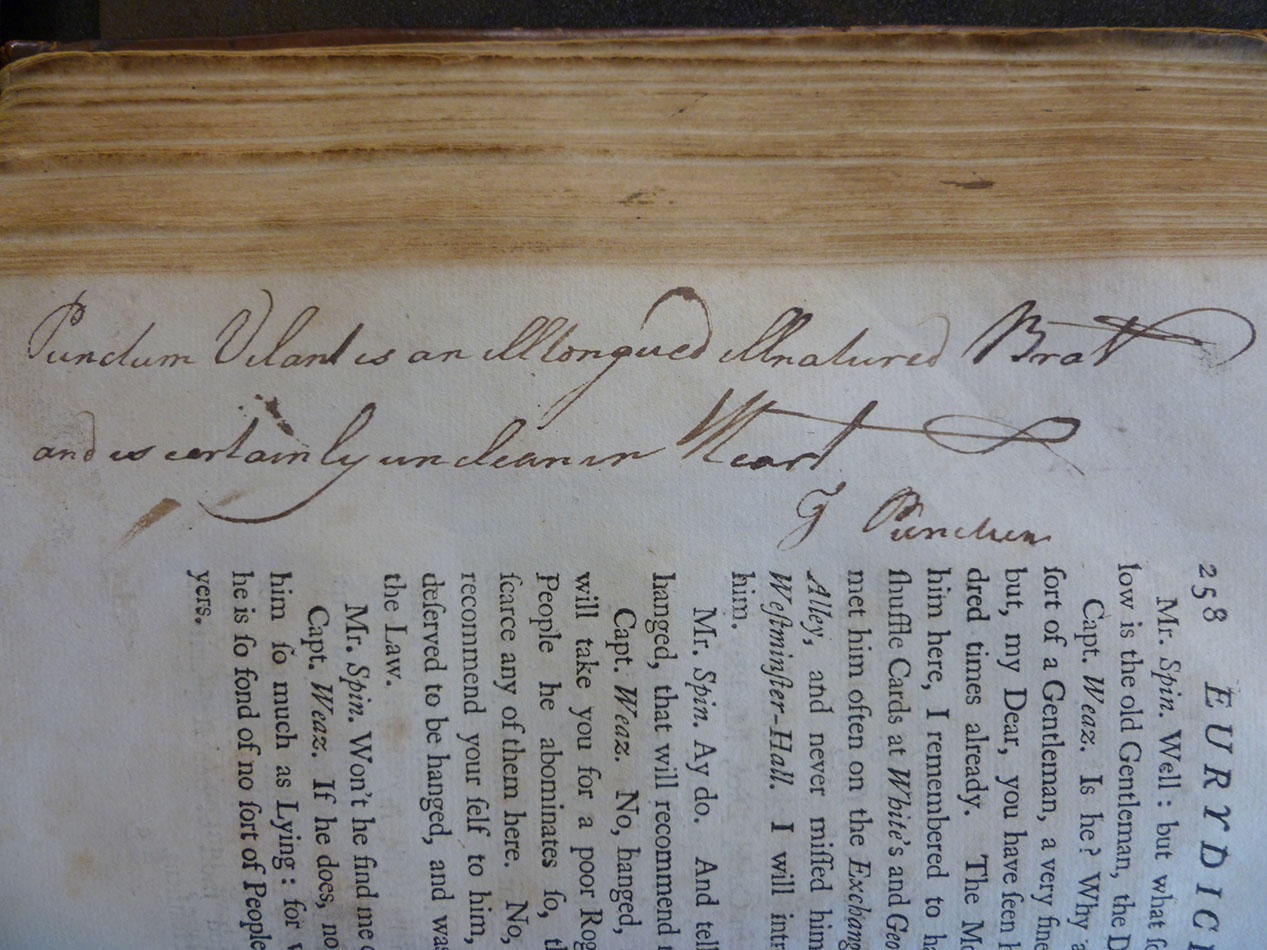 Punctum Vilant is an illtongued illnatured Brat
and is certainly unclean in Heart
G Punctum
258 EURYDIC
Mr. Spin. Well: but what
low is the old Gentleman, the D
Capt. Weaz. Is he? Why
ſort of a Gentleman, a very fine
but, my Dear, you have ſeen
dred times already. The Mo
him here, I remembered to ha
ſhuffle Cards at White's and Geo
met him often on the Exchang
Alley, and never miſſed him
Weſtminſter-Hall. I will intr
him.
Mr. Spin. Ay do. And tell
hanged, that will recommend
Capt. Weaz. No, hanged,
will take you for a poor Rog
People he abominates ſo, th
ſcarce any of them here. No,
recommend your ſelf to him,
deſerved to be hanged, and was
the Law.
Mr. Spin. Won't he find me
Capt. Weaz. If he does, no
him ſo much as Lying: for
he is ſo fond of no ſort of People
yers.